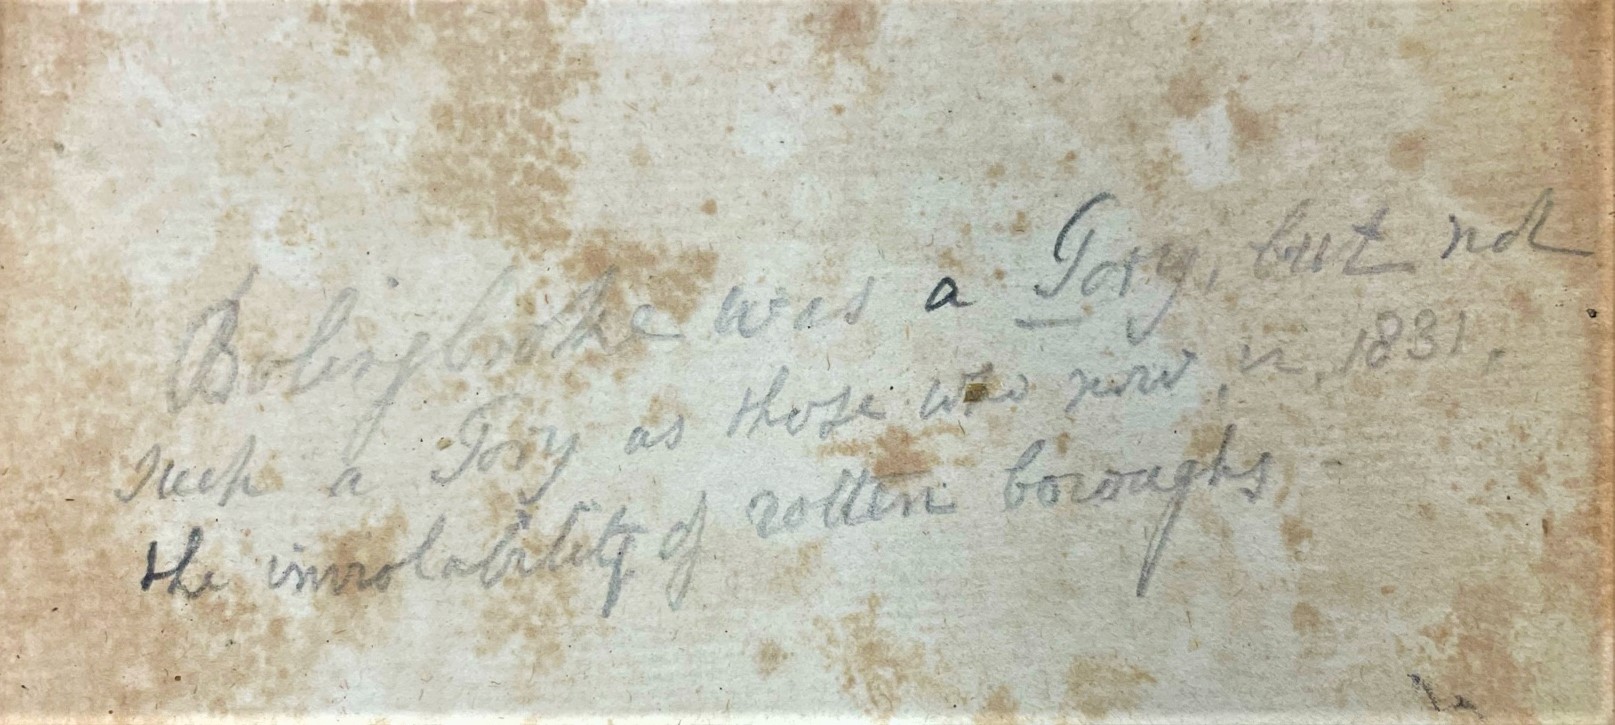 Bolingbroke was a Tory, but not
such a Tory as those who now, in 1831,
the inviolability of rotten boroughs